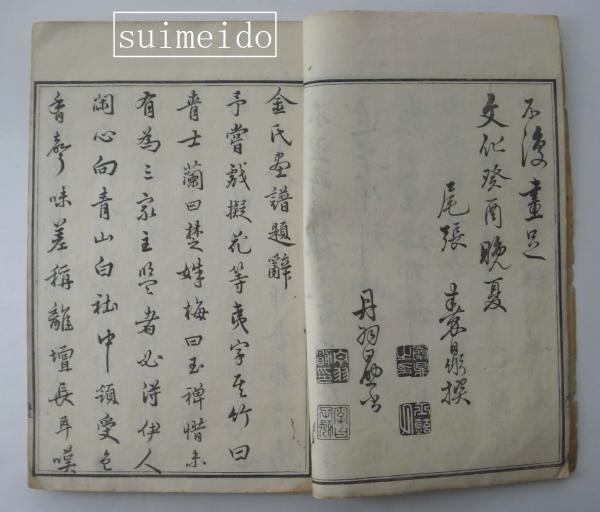 suimeido
不復畫足
文化癸酉晩夏
尾張 秦鼎撰
丹羽
金氏畫譜題辭
予嘗戲擬花等夷字其竹曰
青士蘭曰楚姝梅曰玉禪惜未
有為三家主盟者必得伊人
閑心向青山白社中領受色
香聲味差稱龍壇長耳嘆